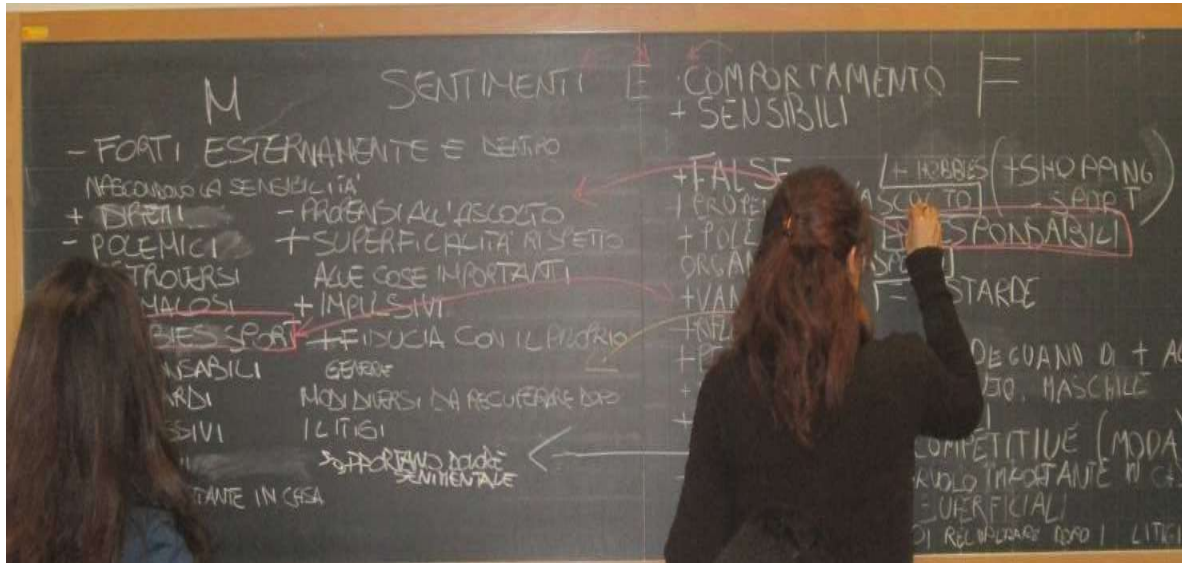 M SENTIMENTI E COMPORTAMENTO F
+ SENSIBILI
- FORTI ESTERNAMENTE E DENTRO
NASCONDONO LA SENSIBILITA'
+ DIRETTI
- POLEMICI
TROVERSI
MALOSI
BIES SPORT
NSABILI
ARDI
SSIVI
TANTE IN CASA
- PROPENSI ALL'ASCOLTO
+ SUPERFICALITÀ RISPETTO
ALLE COSE IMPORTANTI
+ IMPULSIVI
+ FIDUCIA CON IL PROPRIO
GENERE
MODI DIVERSI DA RECUPERARE DOPO
I LITIGI
SOPPORTANO DOLORE
SENIMENTALE
+ FALSE
PROPE ASCOLTO
+ POLE
ORGAN
+ VAN
+ HOBBIES (+ SHOPPING
- SPORT)
RESPONSABILI
STARDE
DEGUANO DI + A
MASCHILE
COMPETITIVE (MODA)
RUOLO IMPORTANTE IN CAS
SUPERFICIALI
DI RECUPERARE DOPO I LITIGI